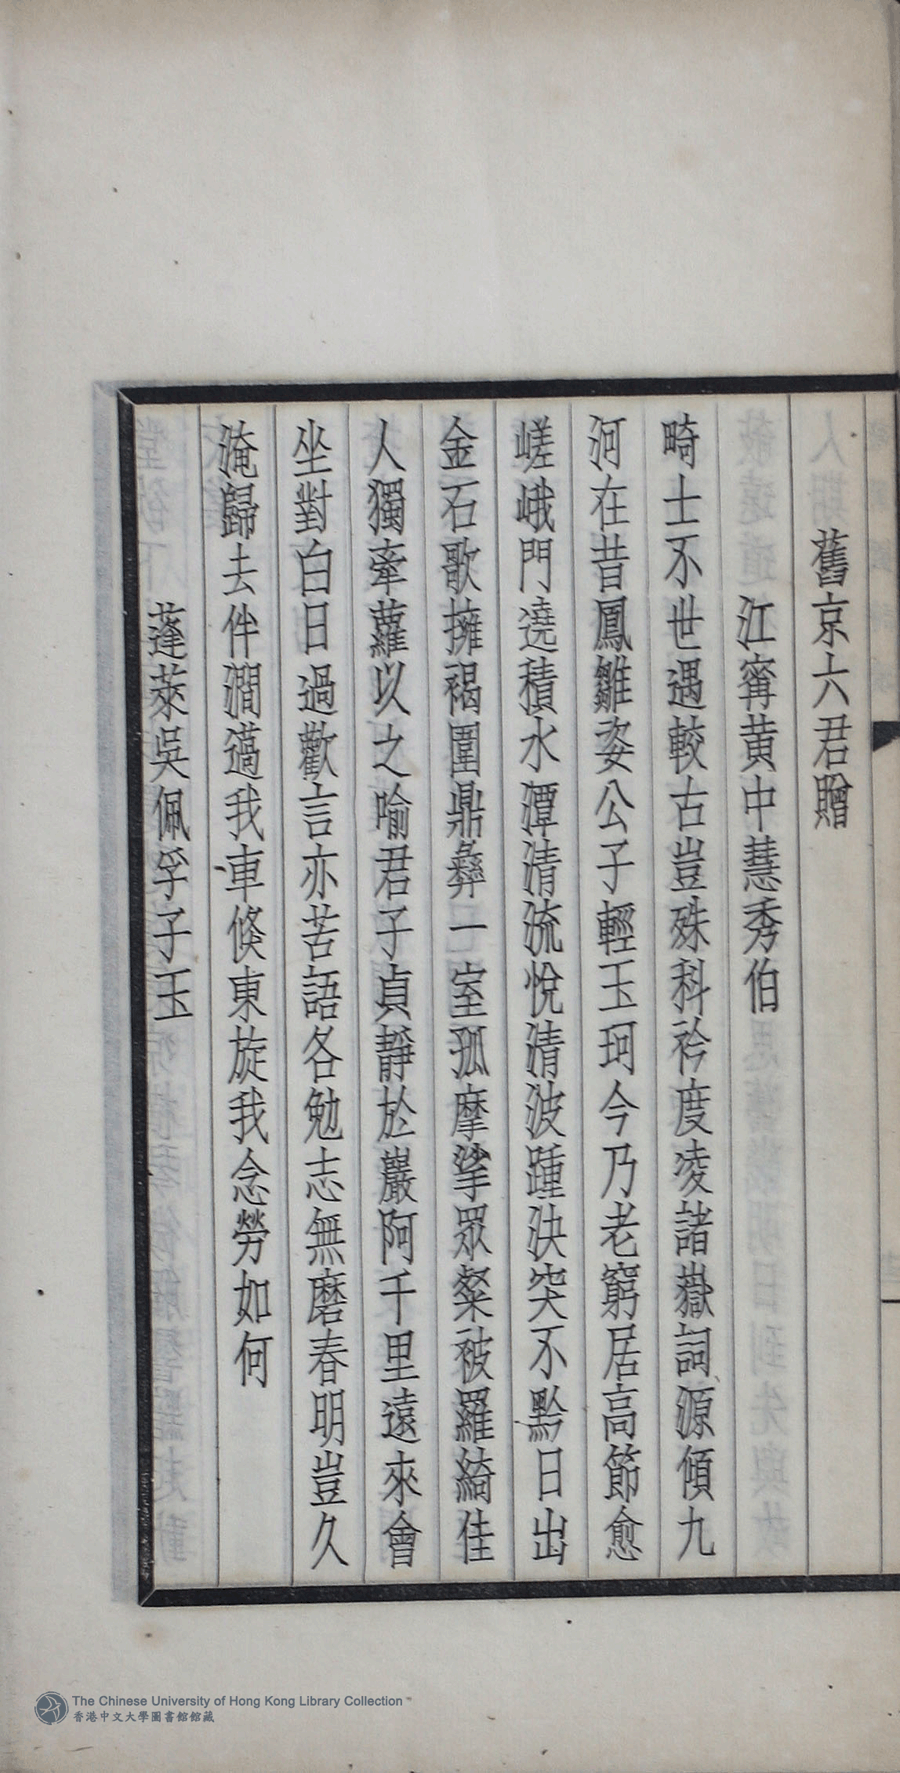 舊京六君贈
江寗黄中慧秀伯
畸士不世遇較古豈殊科衿度凌諸嶽詞源傾九
河在昔鳳雛姿公子輕玉珂今乃老窮居高節愈
嵯峨門遶積水潭清流悅清波踵決突不黔日出
金石歌擁褐圍鼎彝一室孤摩挲眾粲被羅綺佳
人獨牽蘿以之喻君子貞靜於巖阿千里遠來會
坐對白日過歡言亦苦語各勉志無磨春明豈久
淹歸去伴澗薖我車倏東旋我念勞如何
蓬萊吳佩孚子玉
The Chinese University of Hong Kong Library Collection
香港中文大學圖書館館藏